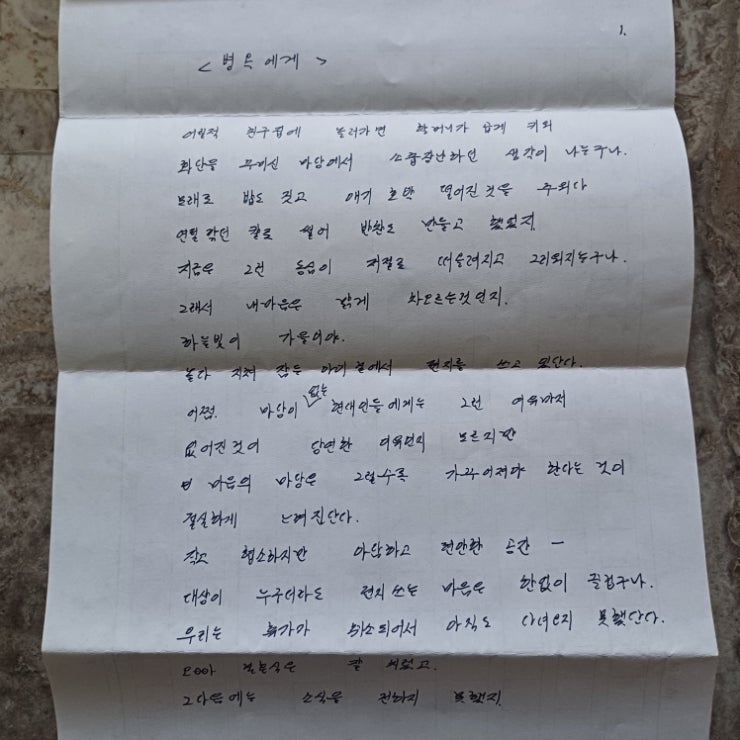 1.
< 병욱에게 >
어릴적 친구집에 놀러가면 할머니가 곱게 키워
화단을 꾸미신 마당에서 소꿉장난하던 생각이 나는구나.
모래로 밥도 짓고 애기 호박 떨어진 것을 주워다
연필 깎던 칼로 썰어 반찬도 만들고 했었지
지금은 그런 동심이 저절로 떠올려지고 그리워지는구나.
그래서 내마음은 맑게 차오르는것인지.
하늘빛이 가을이야.
놀다 지쳐 잠든 아이 곁에서 편지를 쓰고 있단다.
어쩜. 마당이 없는 현대인들에게는 그런 여유마저
없어진것이 당연한 이유인지 모르지만
마음의 마당은 그럴수록 가꾸어져야 한다는 것이
절실하게 느껴진단다.
작고 협소하지만 아담하고 편안한 공간 —
대상이 누구더라도 편지 쓰는 마음은 한없이 즐겁구나.
우리는 휴가가 취소되어서 아직도 다녀오지 못했단다.
잘 치렀고.
그다음에는 소식을 전하지 못했지